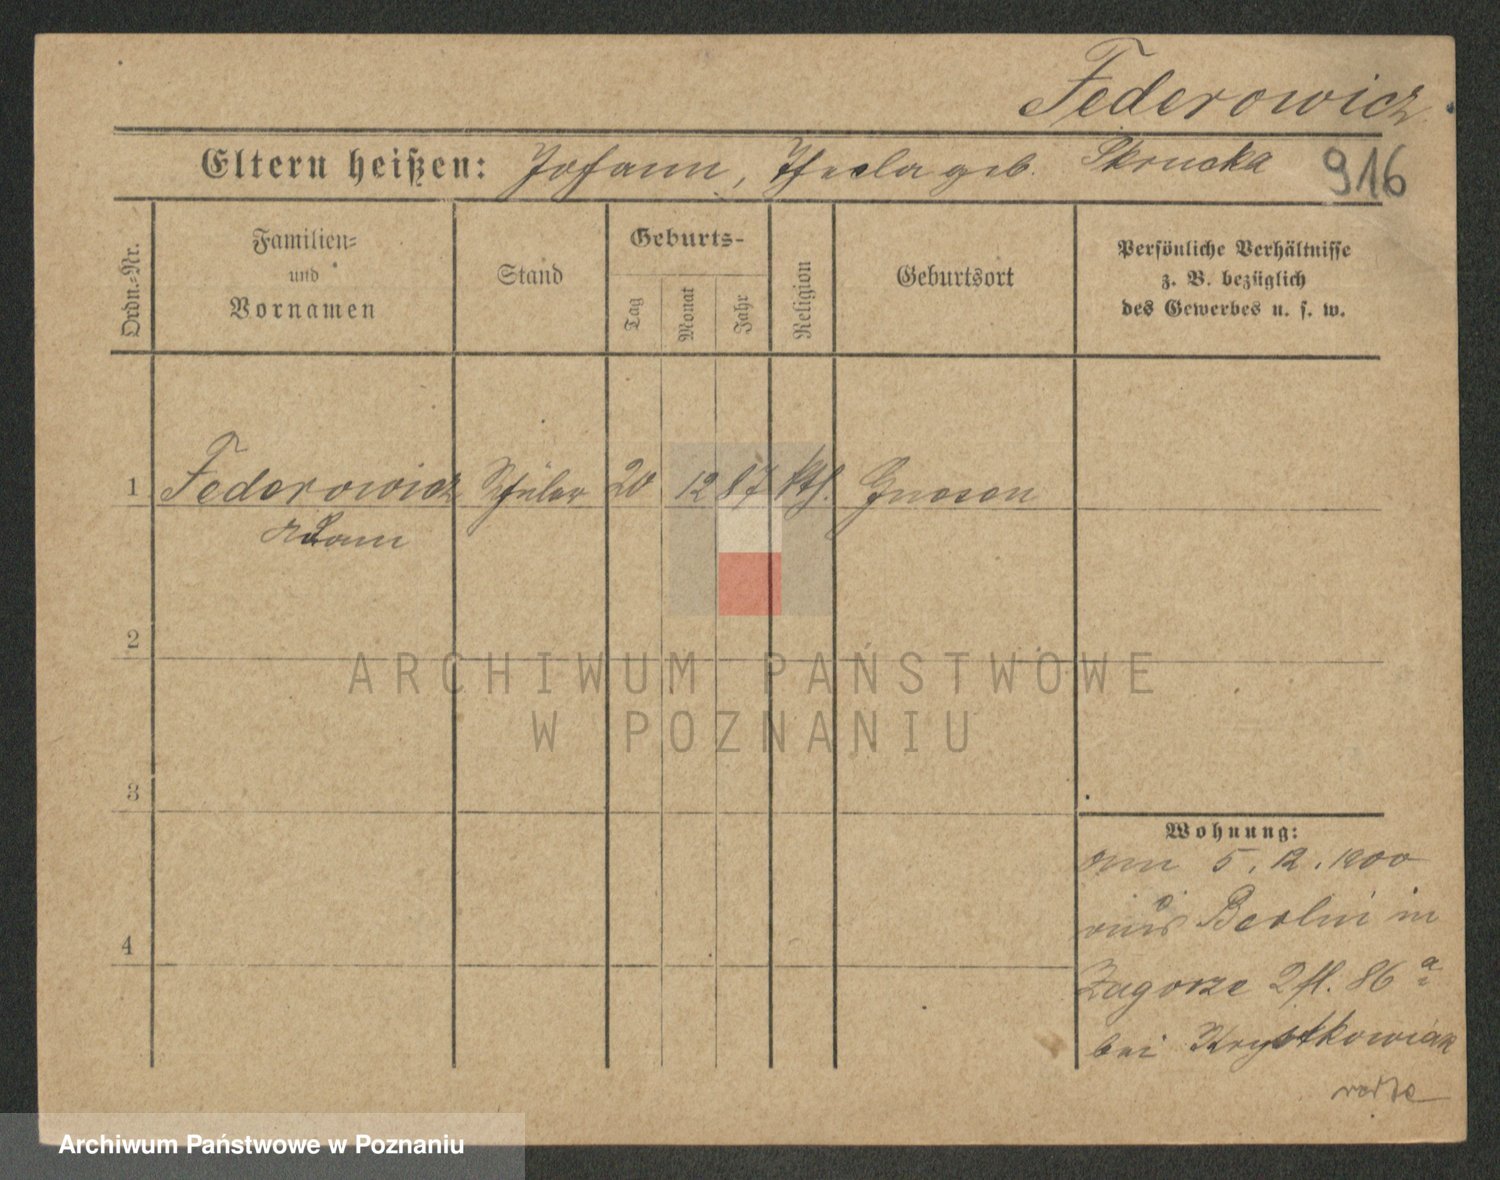 Federowicz
Eltern heißen: Johann, Thecla geb. Skrucka 916
Ordn.-Nr.
Familien-
und
Vornamen
Stand
Geburts-
Tag
Monat
Jahr
Religion
Geburtsort
Persönliche Verhältnisse
z. B. bezüglich
des Gewerbes u. s. w.
1 Federowicz Schüler 20 12 87 kth. Gnesen
Adam
2
ARCHIWUM PAŃSTWOWE
W POZNANIU
3
Wohnung:
Am 5. 12. 1900
aus Berlin in
4
Zagorze 2 fl. 86 a
bei Krystkowiak
Archiwum Państwowe w Poznaniu